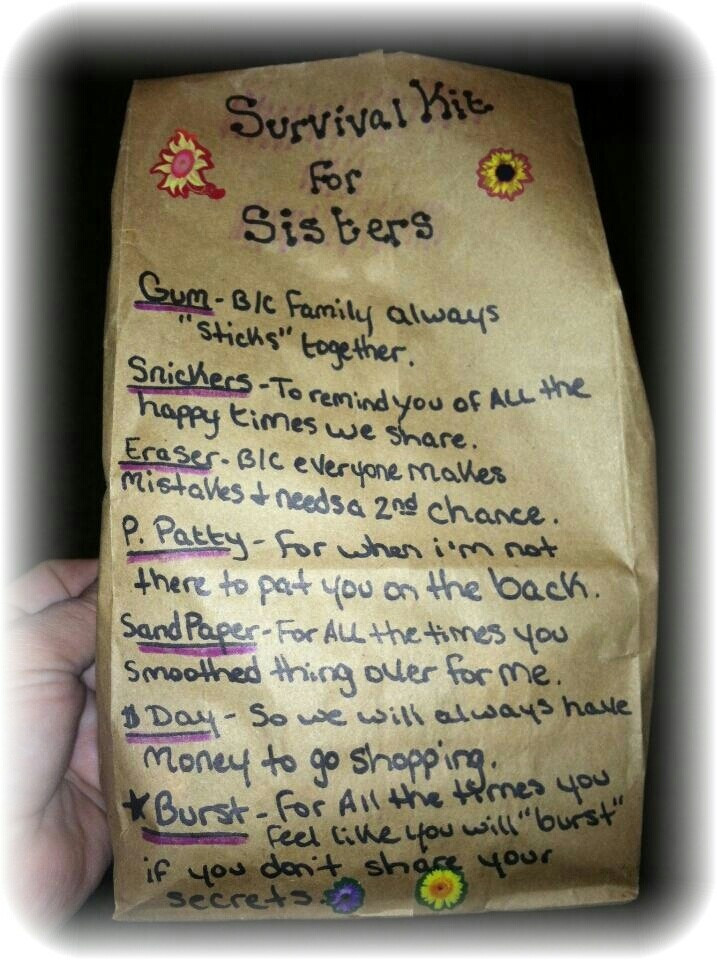 Survival Kit
For
Sisters
Gum - B/C Family always
"sticks" together.
Snickers - To remind you of ALL the
happy times we share.
Eraser - B/C everyone makes
mistakes + needs a 2nd chance.
P. Patty - For when i'm not
there to pat you on the back.
SandPaper - For All the times you
smoothed thing over for me.
$ Day - So we will always have
money to go shopping.
★ Burst - For All the times you
feel like you will "burst"
if you don't share your
secrets.